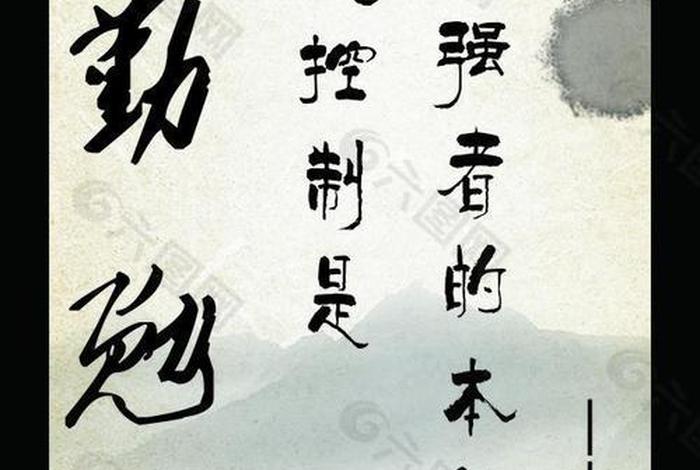 强者的本
控制是
勤勉
六图网